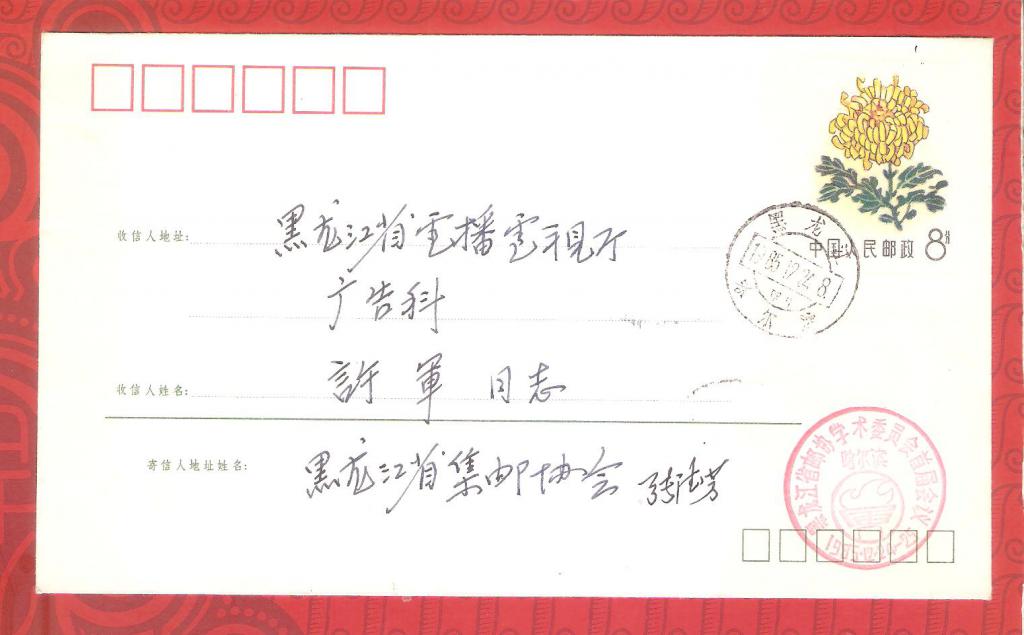 中国人民邮政 8分
黑龙江
1985.12.24.8
哈尔滨
收信人地址:
黑龙江省電播電視厅
广告科
收信人姓名:
許軍 同志
寄信人地址姓名:
黑龙江省集邮协会
黑龙江省邮协学术委员会首届会议
哈尔滨
1985·12·24-25